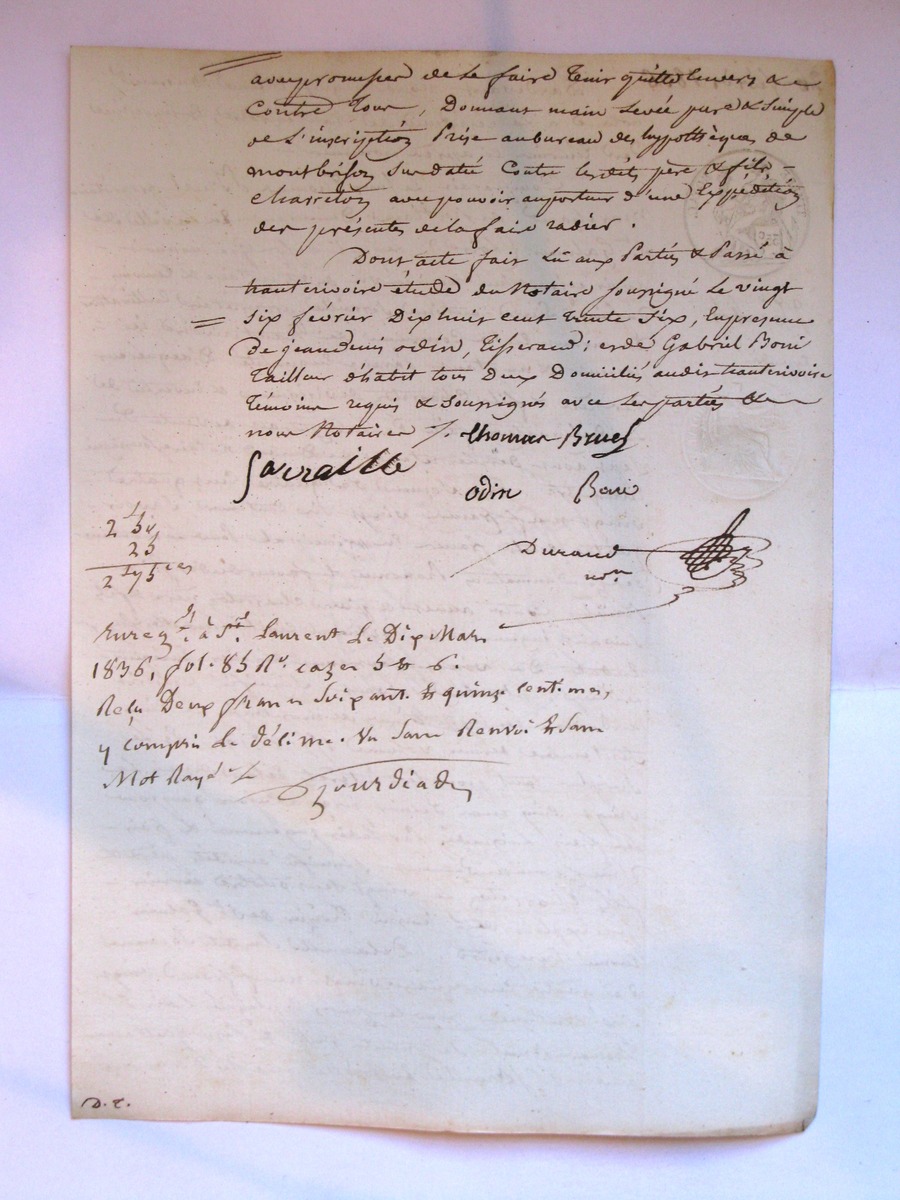 avec promesse de le faire tenir quitte envers &
Contre Tous, Donnant main Levée pure & Simple
de L'inscription Prise au bureau des hypothèques de
montbrison Susdatée Contre lesdits père & fils
Charreton avec pouvoir au porteur d'une Expédition
des présentes de la faire radier.
Dont acte fait Lu aux Parties & Passé à
hauterivoire étude du Notaire soussigné Le vingt
six février Dix huit cent trente Six, En presence
De jean denis odin, Tisserand; et de Gabriel Boni
Tailleur d'habit tous Deux Domiciliés audit hauterivoire
Témoins requis & Soussignés avec Les parties &
nous Notaire /. thomas Bruel
odin Boni
2 f 50
25
2 f 75 ces
Durand
nore
Enregt. à St. Laurent Le Dix Mars
1836, fol. 85 Ro. cases 5 & 6.
Reçu Deux francs Soixante & quinze centimes,
y compris Le décime. Vu Sans Renvoi & Sans
Mot Rayé /.
D. T.